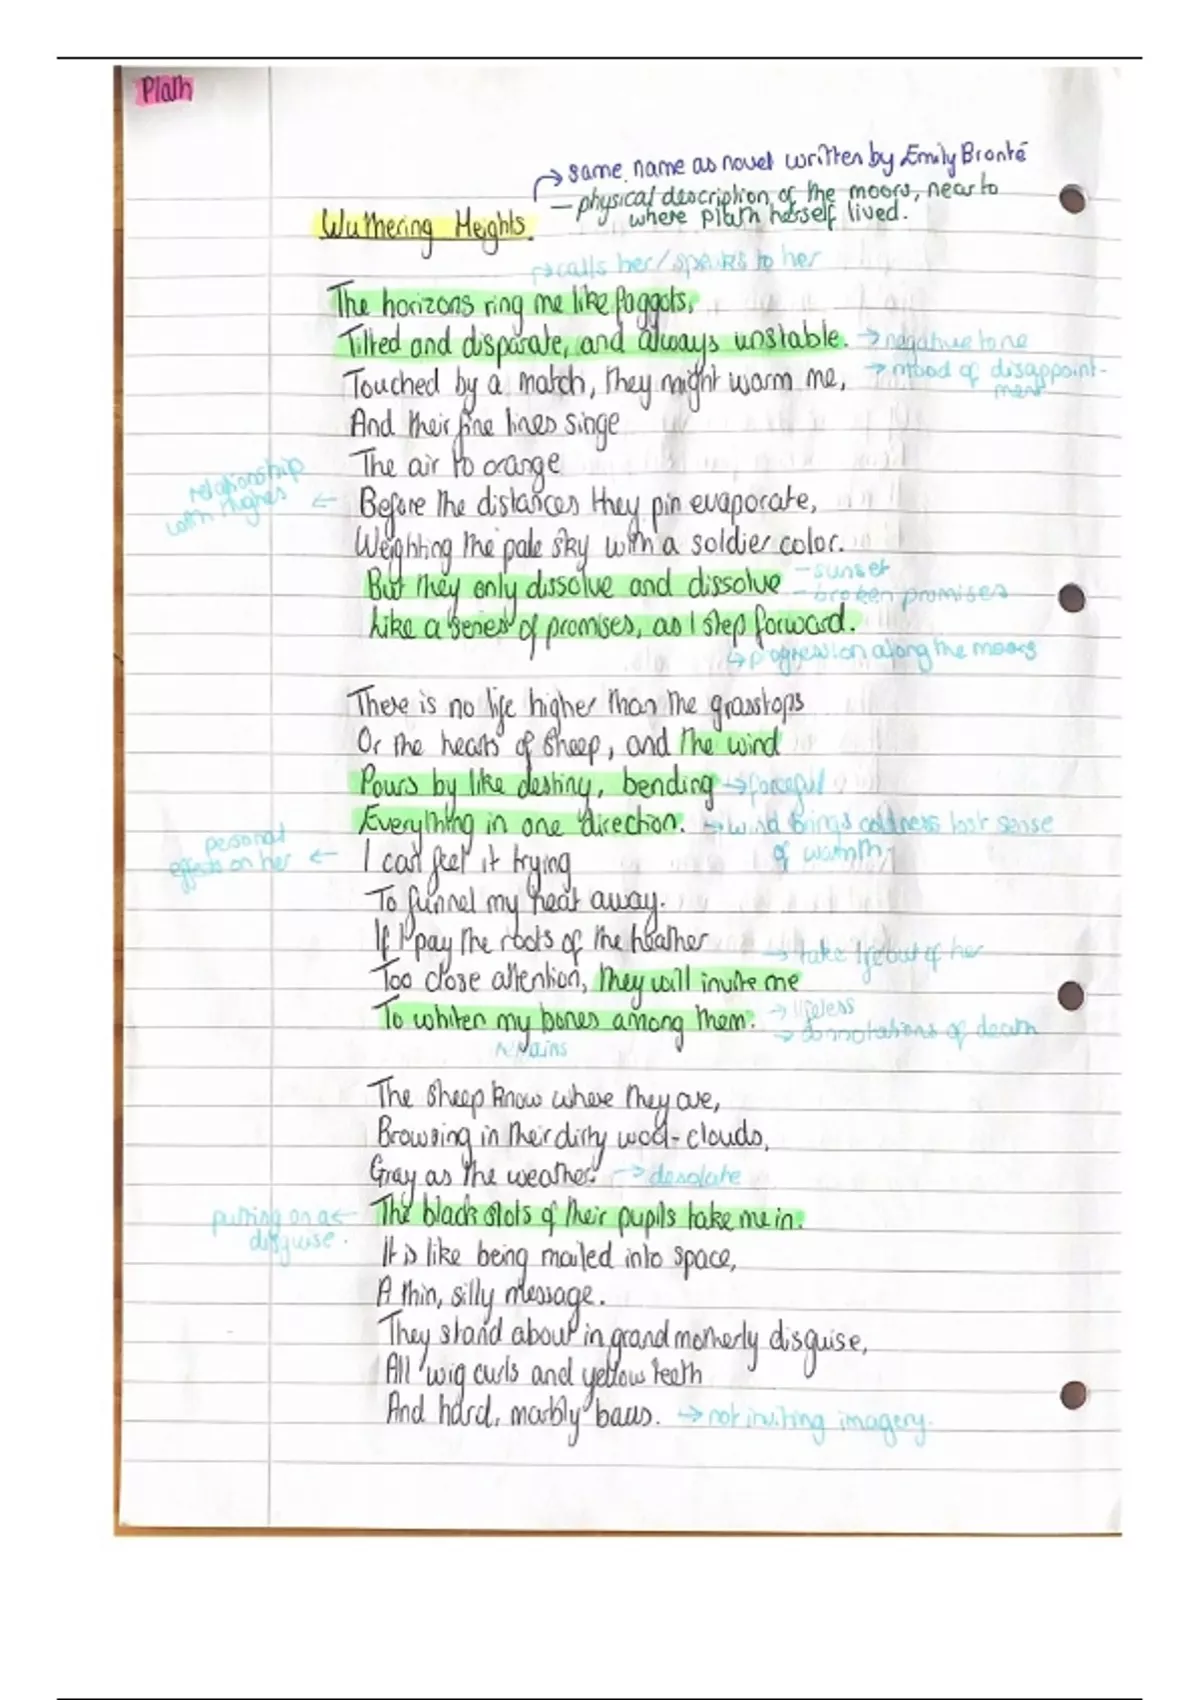 Plath
→ same name as novel written by Emily Brontë
– physical description of the moors, near to
where plath herself lived.
Wuthering Heights
→ calls her/speaks to her
The horizons ring me like faggots,
Tilted and disparate, and always unstable. → negative tone
→ mood of disappoint-
ment
Touched by a match, they might warm me,
And their fine lines singe
The air to orange
relationship
with Hughes ←
Before the distances they pin evaporate,
Weighting the pale sky with a soldier color.
But they only dissolve and dissolve – sunset
– broken promises
Like a series of promises, as I step forward.
↳ progression along the moors
There is no life higher than the grasstops
Or the hearts of sheep, and the wind
Pours by like destiny, bending → forceful
Everything in one direction. → wind brings coldness lost sense
of warmth
personal
effects on her ←
I can feel it trying
To funnel my heat away.
If I pay the roots of the heather
→ take life out of her
Too close attention, they will invite me
To whiten my bones among them. → lifeless
→ connotations of death
remains
The sheep know where they are,
Browsing in their dirty wool-clouds,
Gray as the weather. → desolate
putting on a ←
disguise.
The black slots of their pupils take me in.
It is like being mailed into space,
A thin, silly message.
They stand about in grandmotherly disguise,
All wig curls and yellow teeth
And hard, marbly baas. → not inviting imagery.